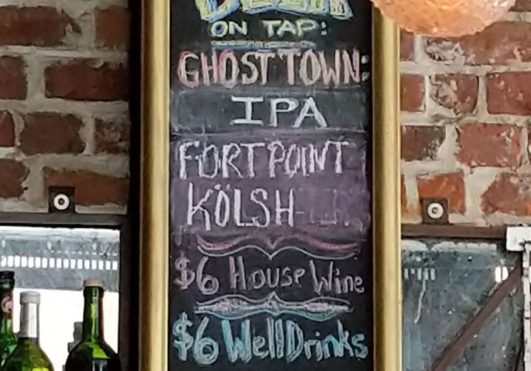 BEER
ON TAP:
GHOST TOWN:
IPA
FORT POINT
KÖLSH
$6 House Wine
$6 Well Drinks